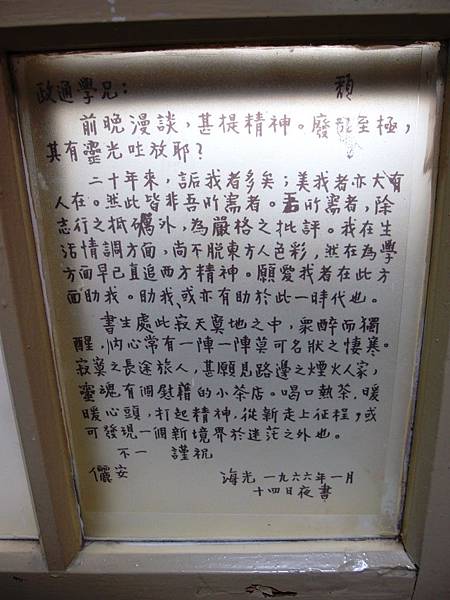 政通學兄： 頹
前晚漫談，甚提精神。廢至極，
其有靈光吐放耶？
二十年來，詬我者多矣；美我者亦大有
人在。然此皆非吾所需者。吾所需者，除
志行之抵礪外，為嚴格之批評。我在生
活情調方面，尚不脫東方人色彩，然在為學
方面早已直追西方精神。願愛我者在此方
面助我。助我，或亦有助於此一時代也。
書生處此寂天寞地之中，衆醉而獨
醒，內心常有一陣一陣莫可名狀之悽寒。
寂寞之長途旅人，甚願見路邊之煙火人家，
靈魂有個慰藉的小茶店。喝口熱茶，暖
暖心頭，打起精神，從新走上征程，或
可發現一個新境界於迷茫之外也。
不一 謹祝
儷安 海光 一九六六年一月
十四日夜書